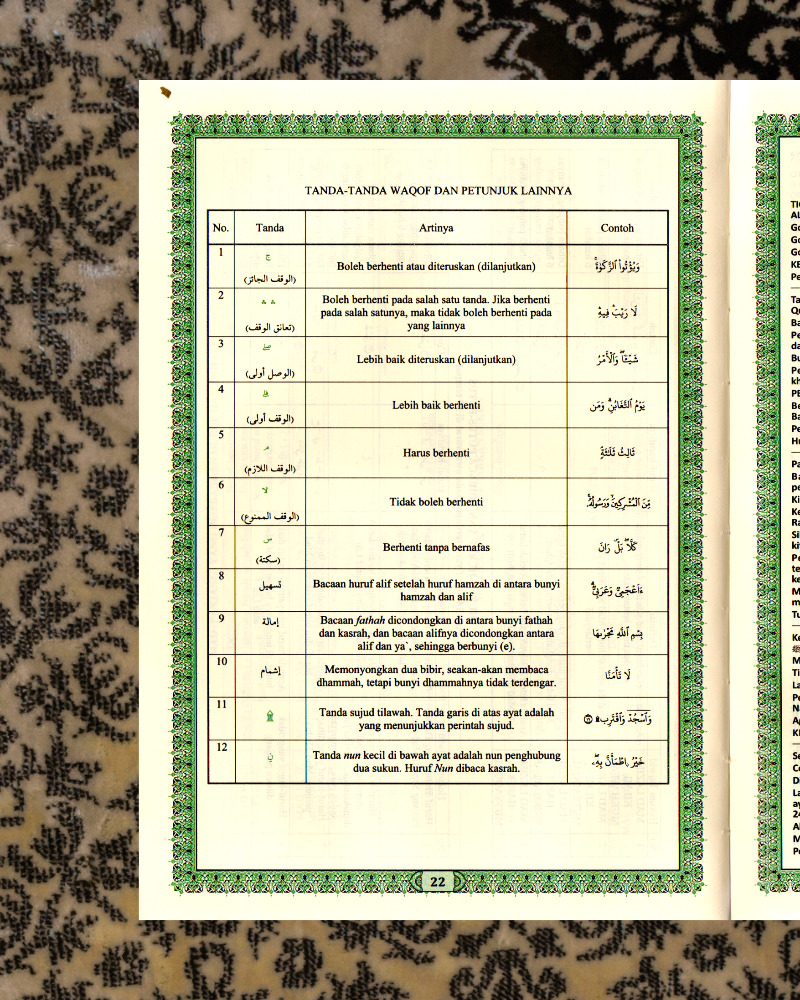 TANDA-TANDA WAQOF DAN PETUNJUK LAINNYA
No. Tanda Artinya Contoh
1 ج Boleh berhenti atau diteruskan (dilanjutkan) وَيُؤْتُوا۟ ٱلزَّكَوٰةَۚ
(الوقف الجائز)
2 Boleh berhenti pada salah satu tanda. Jika berhenti
pada salah satunya, maka tidak boleh berhenti pada لَا رَيْبَۛ فِيهِۛ
yang lainnya
(تعانق الوقف)
3 صلے Lebih baik diteruskan (dilanjutkan) شَيْـًٔاۖ وَٱلْأَمْرُ
(الوصل أولى)
4 قلے Lebih baik berhenti يَوْمُ ٱلتَّغَابُنِۗ وَمَن
(الوقف أولى)
5 م Harus berhenti ثَالِثُ ثَلَٰثَةٍۘ
(الوقف اللازم)
6 لا Tidak boleh berhenti مِّنَ ٱلْمُشْرِكِينَۙ وَرَسُولُهُۥ
(الوقف الممنوع)
7 س Berhenti tanpa bernafas كَلَّاۖ بَلْۜ رَانَ
(سكتة)
8 تسهيل Bacaan huruf alif setelah huruf hamzah di antara bunyi ءَا۬عْجَمِىٌّ وَعَرَبِىٌّۗ
hamzah dan alif
9 إمالة Bacaan fathah dicondongkan di antara bunyi fathah
dan kasrah, dan bacaan alifnya dicondongkan antara بِسْمِ ٱللَّهِ مَجْر۪ىٰهَا
alif dan ya`, sehingga berbunyi (e).
10 إشمام Memonyongkan dua bibir, seakan-akan membaca لَا تَأْمَ۫نَّا
dhammah, tetapi bunyi dhammahnya tidak terdengar.
11 ۩ Tanda sujud tilawah. Tanda garis di atas ayat adalah وَٱسْجُدْ وَٱقْتَرِب۩
yang menunjukkan perintah sujud.
12 ن Tanda nun kecil di bawah ayat adalah nun penghubung خَيْرٌ ٱطْمَأَنَّ بِهِۦۖ
dua sukun. Huruf Nun dibaca kasrah.
22